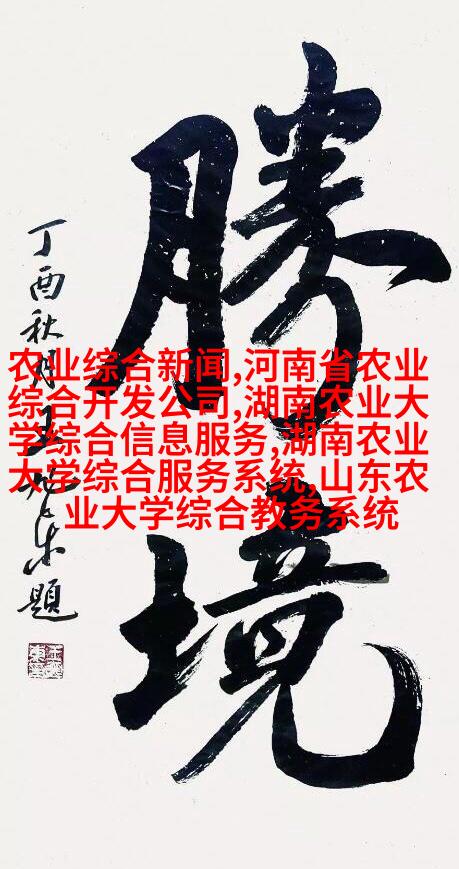 勝境
丁酉秋月王 題
农业综合新闻,河南省农业
综合开发公司,湖南农业大
学综合信息服务,湖南农业
大学综合服务系统,山东农
业大学综合教务系统